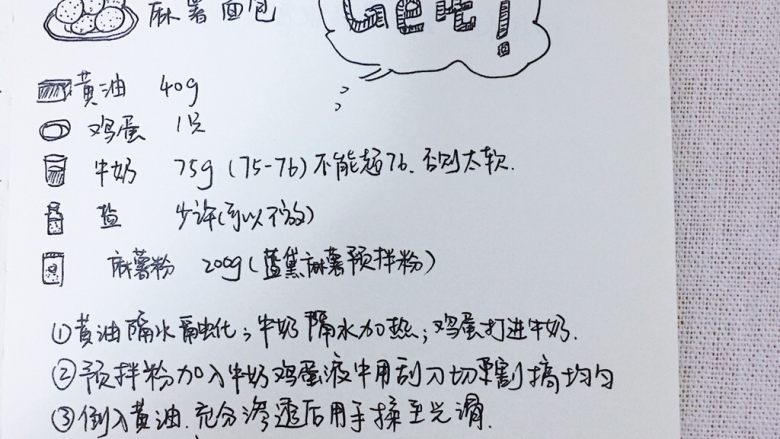 麻薯面包
Get!
黄油 40g
鸡蛋 1只
牛奶 75g (75-76)不能超76.否则太软.
盐 少许(可以不放)
麻薯粉 200g(蓝黛麻薯预拌粉)
①黄油隔水融化;牛奶隔水加热;鸡蛋打进牛奶.
②预拌粉加入牛奶鸡蛋液中用刮刀切割搞均匀
③倒入黄油.充分渗透后用手揉至光滑.